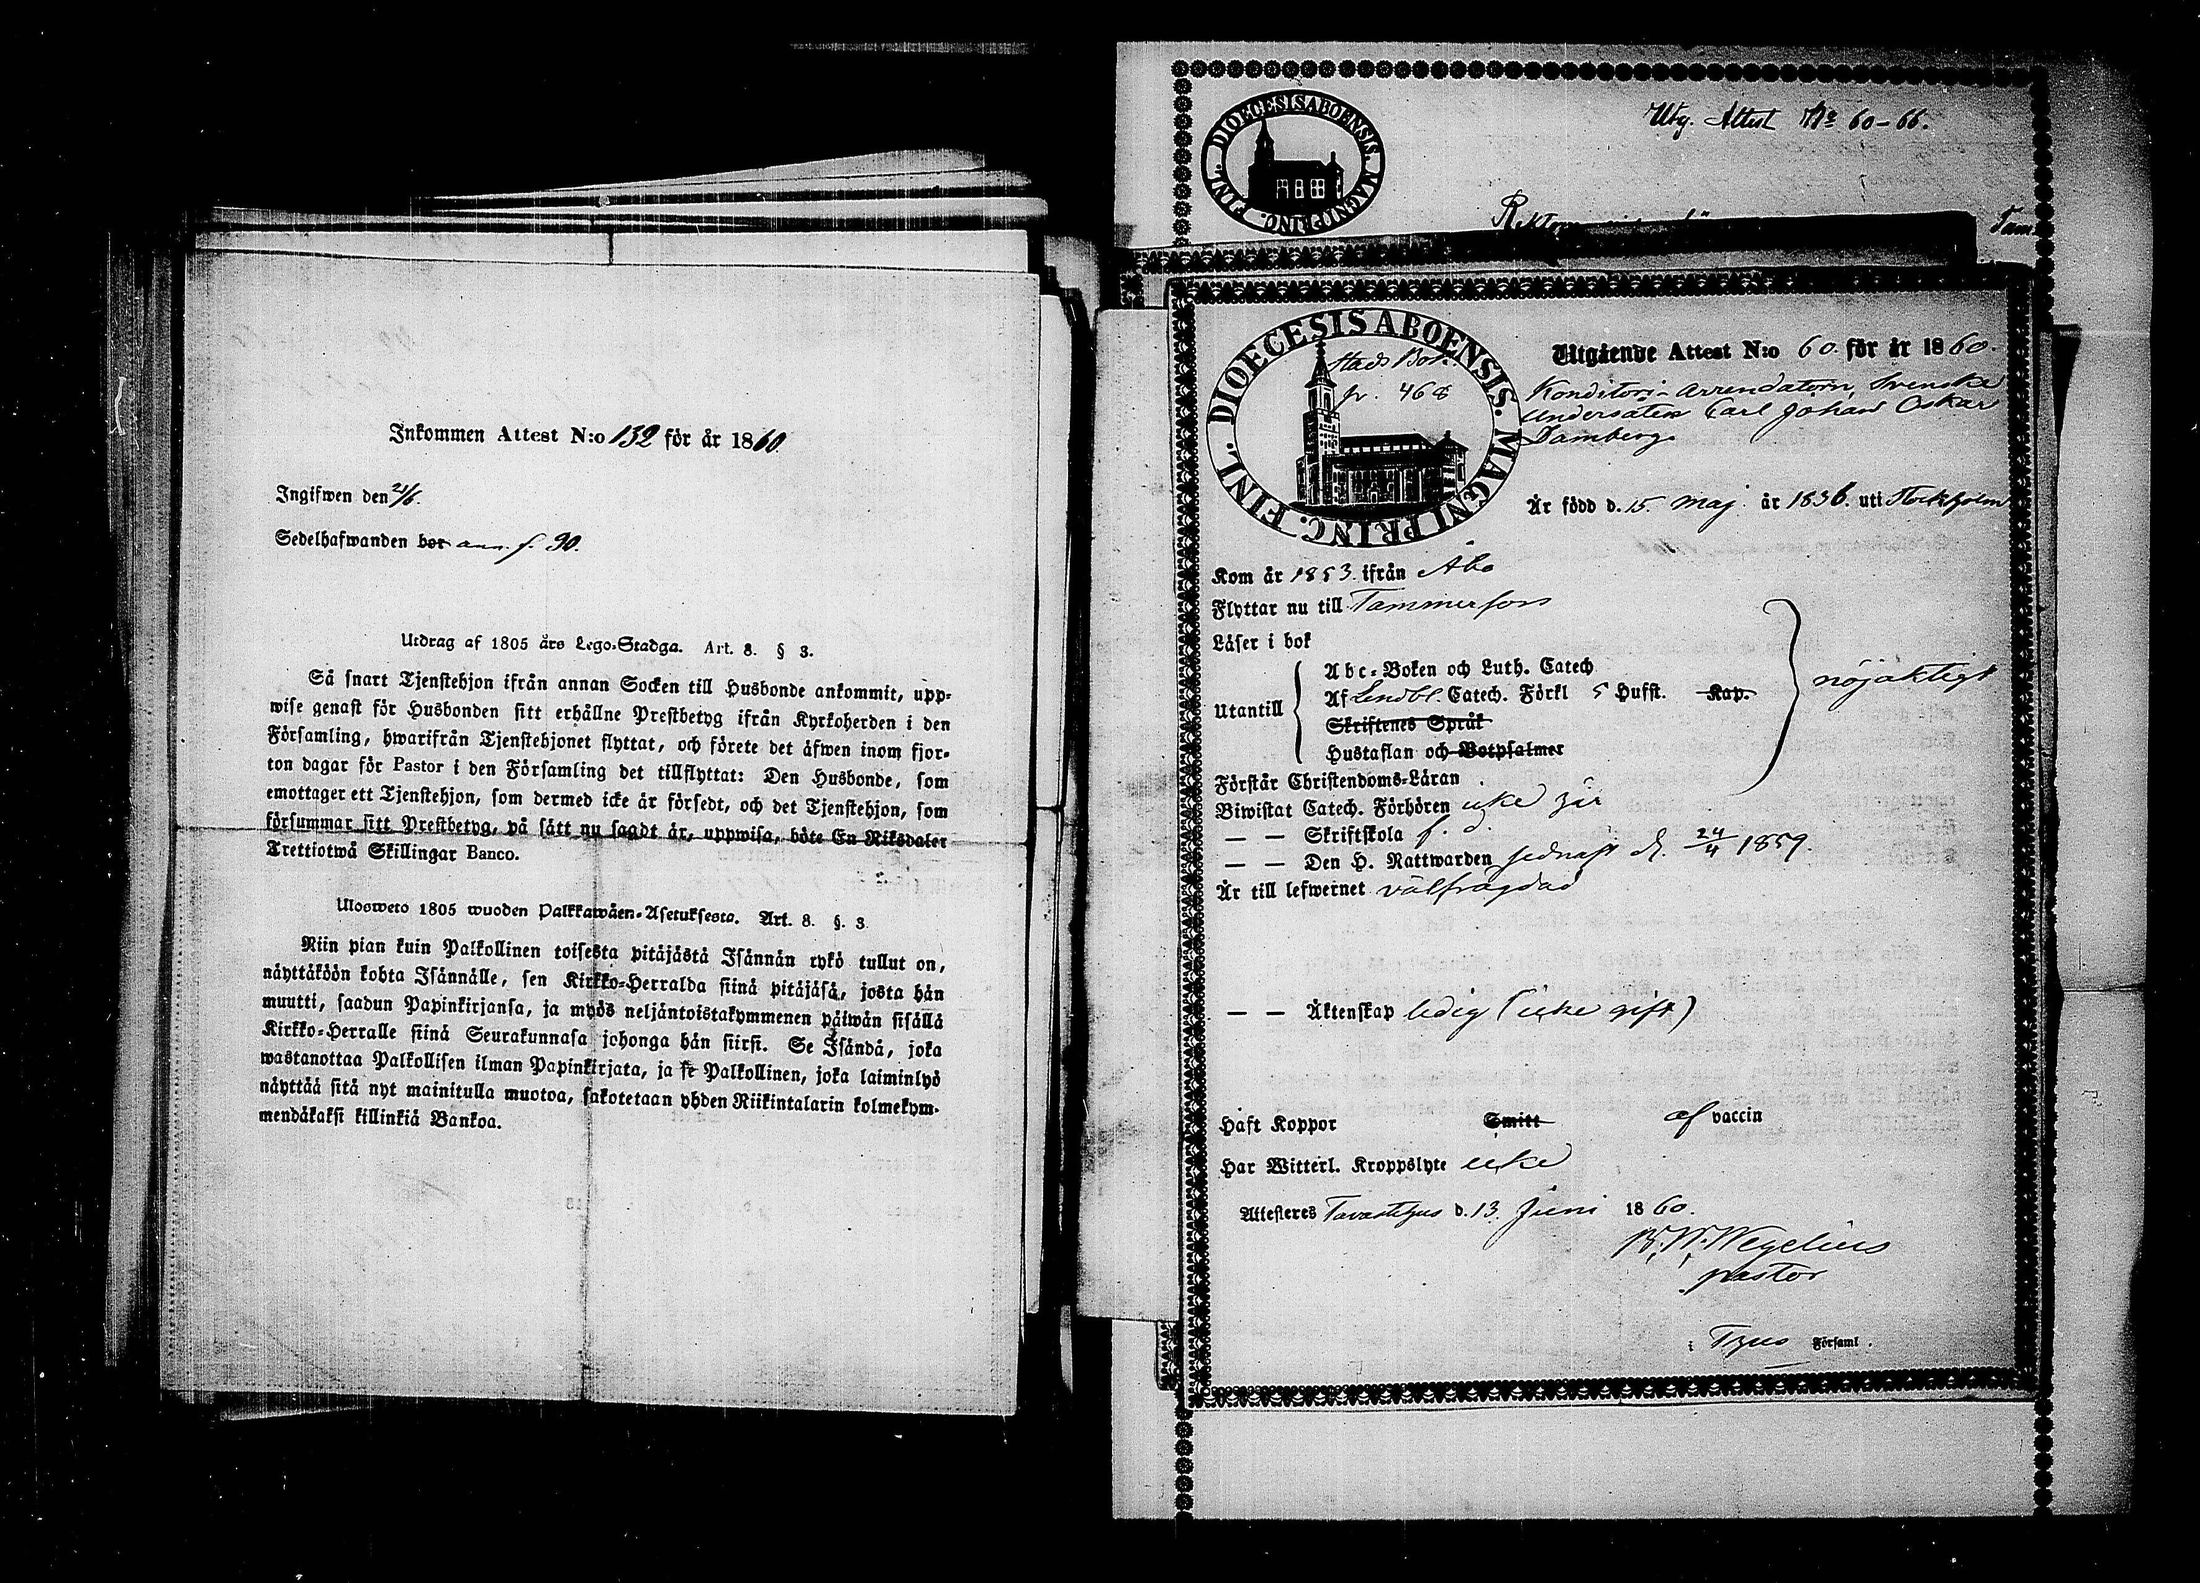 Inkommen Attest N:o 132 för år 1860.
Ingifwen den 21/6.
Sedelhafwanden bor ann. f. 30.
Utdrag af 1805 års Lego-Stadga. Art. 8. § 3.
Så snart Tjenstehjon ifrån annan Socken till Husbonde ankommit, upp-
wise genast för Husbonden sitt erhållne Prestbetyg ifrån Kyrkoherden i den
Församling, hwarifrån Tjenstehjonet flyttat, och förete det äfwen inom fjor-
ton dagar för Pastor i den Församling det tillflyttat: Den Husbonde, som
emottager ett Tjenstehjon, som dermed icke är försedt, och det Tjenstehjon, som
försummar sitt Prestbetyg, på sätt nu sagdt är, uppwisa, böte En Riksdaler
Trettiotwå Skillingar Banco.
Ulosweto 1805 wuoden Palkkawäen-Asetuksesta. Art. 8. §. 3
Niin pian kuin Palkollinen toisesta pitäjästä Isännän tykö tullut on,
näyttäköön kohta Isännälle, sen Kirkko-Herralda siinä pitäjäsä, josta hän
muutti, saadun Papinkirjansa, ja myös neljäntoistakymmenen päiwän sisällä
Kirkko-Herralle siinä Seurakunnasa johonga hän siirsi. Se Isändä, joka
wastanottaa Palkollisen ilman Papinkirjata, ja se Palkollinen, joka laiminlyö
näyttää sitä nyt mainitulla muotoa, sakotetaan yhden Riikintalarin kolmekym-
mendäkaksi killinkiä Bankoa.
DIOECESIS ABOENSIS. MAGNI PRINC. FINL.
Utg. Attest No 60-66.
Tam
DIOECESIS ABOENSIS. MAGNI PRINC. FINL.
Stads Bok.
p. 468
Utgående Attest N:o 60. för år 1860.
Konditori-arrendatorn, Svenske
Undersåten Carl Johan Oskar
Damberg.
Är född d. 15. Maj. år 1836. uti Stockholm
Kom år 1853. ifrån Åbo
Flyttar nu till Tammerfors
Läser i bok
Utantill
Abc-Boken och Luth. Catech
Af Lindbl. Catech. Förkl 5 Hufst. Kap.
Skriftenes Språk
Hustaflan och Botpsalmer
nöjaktigt
Förstår Christendoms-Läran
Biwistat Catech. Förhören icke här
— — Skriftskola f. d.
— — Den H. Nattwarden sednast d. 24/4 1859.
Är till lefwernet välfrägdad
— — Äktenskap ledig (icke gift)
Haft Koppor Smitt af vaccin
Har Witterl. Kroppslyte icke
Attesteres Tavastehus d. 13. Juni 1860.
B. W. Wegelius
pastor
i T:hus Församl.